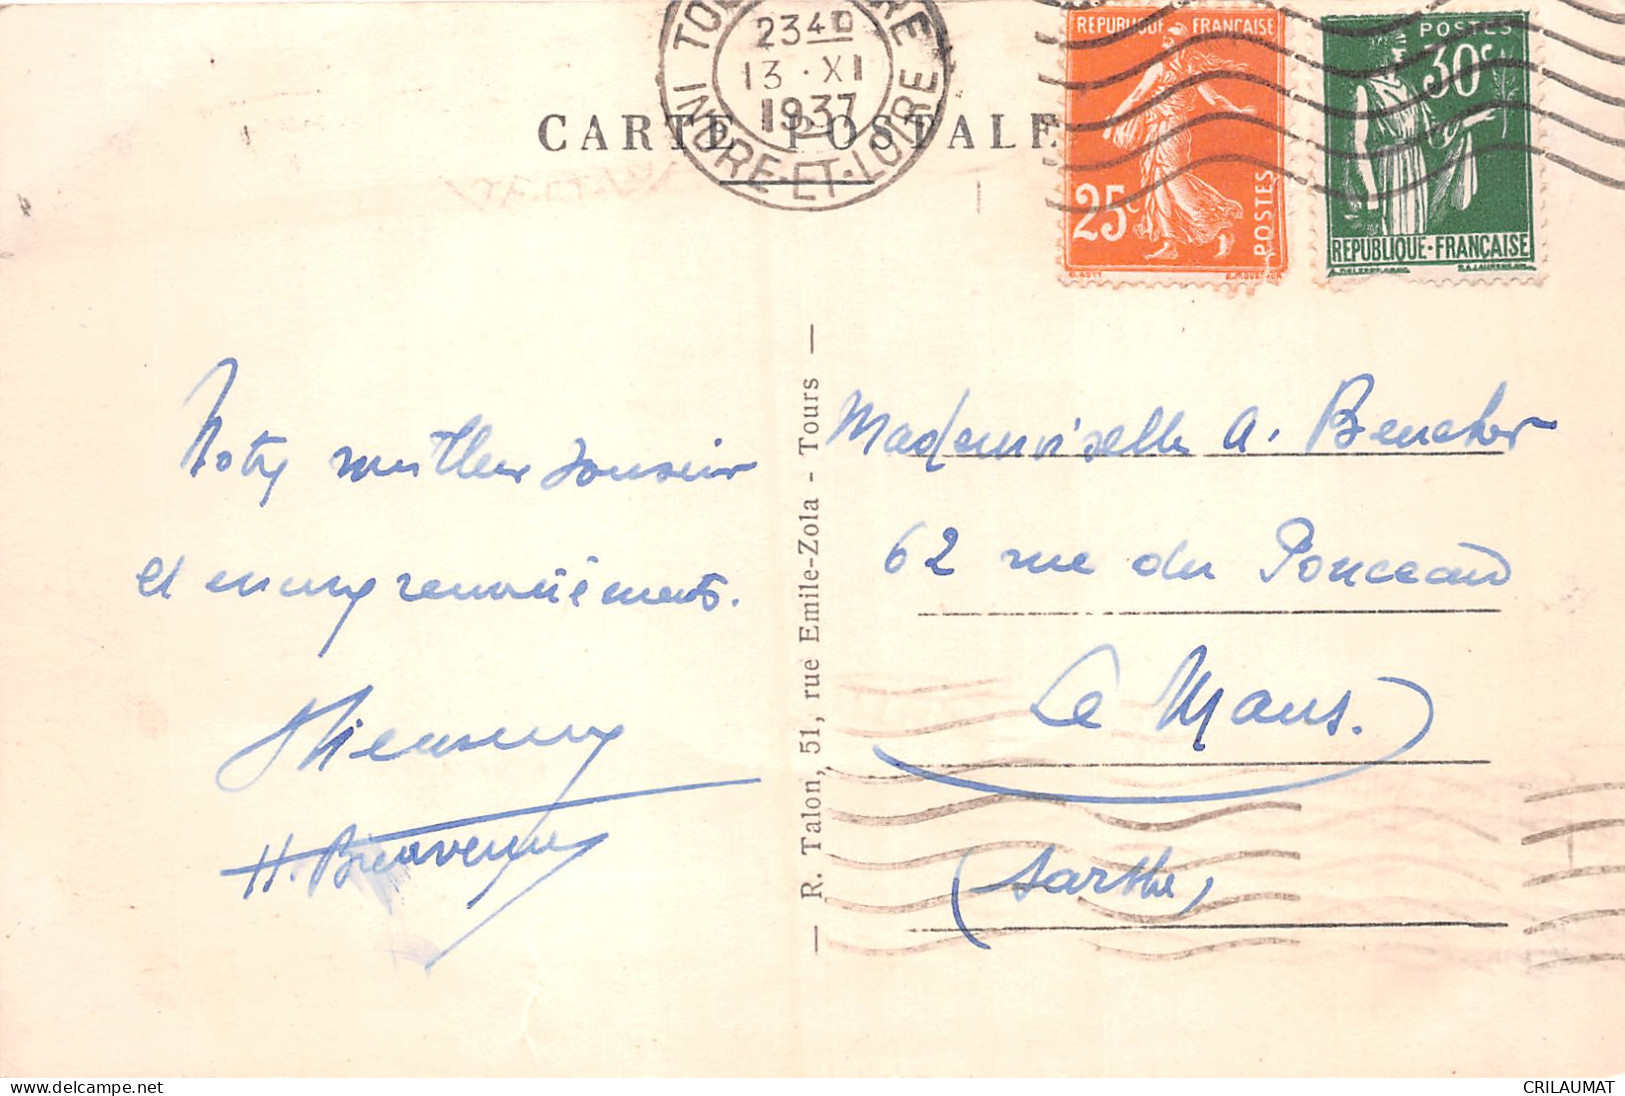 TOURS GARE
23 40
13 · XI
1937
INDRE-ET-LOIRE
CARTE POSTALE
REPUBLIQUE FRANÇAISE
25c
POSTES
POSTES
30c
REPUBLIQUE·FRANÇAISE
meilleur souvenir
et remerciements.
H. Bienvenu
— R. Talon, 51, rue Emile-Zola - Tours —
Mademoiselle A. Bencher
62 rue du Ponceau
Le Mans.
(Sarthe)
delcampe.net
CRILAUMAT